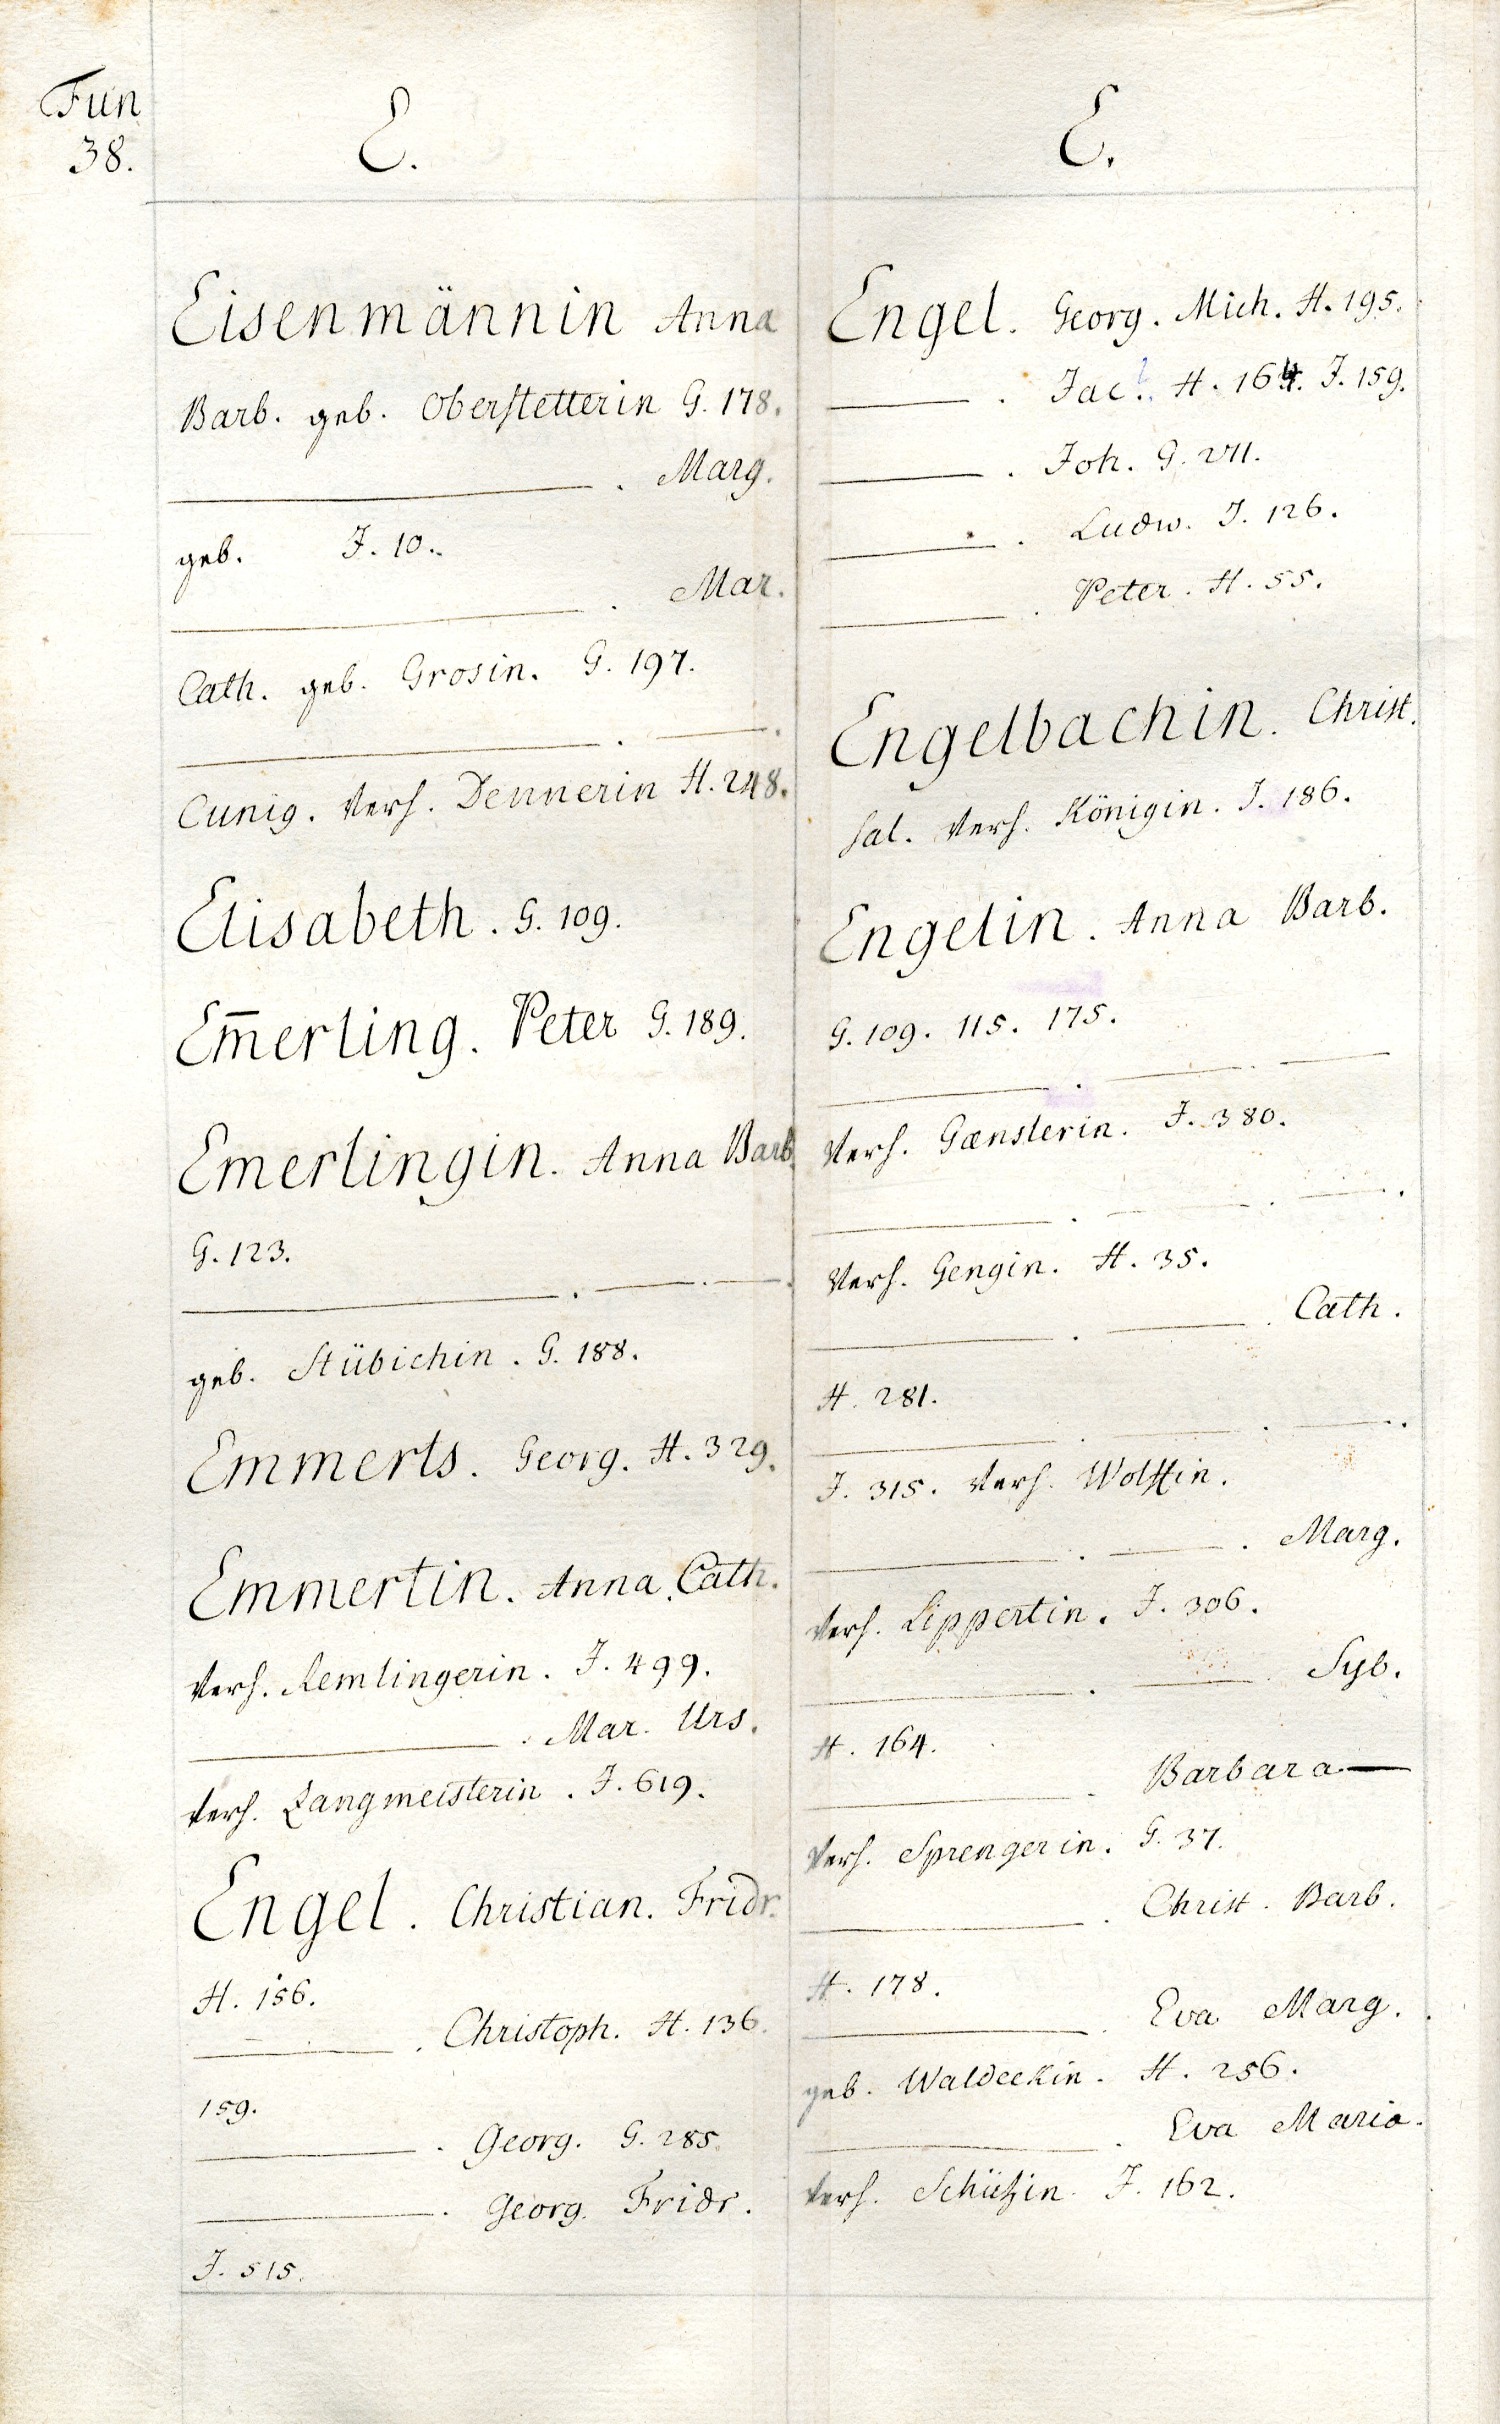 Fun
38.
E.
Eisenmännin Anna
Barb. geb. Oberstetterin G. 178.
———. Marg.
geb. J. 10.
———. Mar.
Cath. geb. Grosin. G. 197.
———. ———.
Cunig. Verh. Dennerin H. 248.
Elisabeth. G. 109.
Em̄erling. Peter G. 189.
Emerlingin. Anna Barb.
G. 123.
———. ———. ———.
geb. Stübichin. G. 188.
Emmerts. Georg. H. 329.
Emmertin. Anna. Cath.
Verh. Remlingerin. J. 499.
———. Mar. Urs.
Verh. Langmeisterin. J. 619.
Engel. Christian. Fridr.
H. 156.
———. Christoph. H. 136.
159.
———. Georg. G. 285.
———. Georg. Fridr.
J. 515.
E.
Engel. Georg. Mich. H. 195.
———. Jac. H. 164. J. 159.
———. Joh. G. VII.
———. Ludw. J. 126.
———. Peter. H. 55.
Engelbachin. Christ.
Sal. Verh. Königin. J. 186.
Engelin. Anna Barb.
G. 109. 115. 175.
———. ———. ———
Verh. Gænslerin. J. 380.
———. ———. ———.
Verh. Gengin. H. 35.
———. ———. Cath.
H. 281.
———. ———. ———.
J. 315. Verh. Wolffin.
———. ———. Marg.
Verh. Lippertin. J. 306.
———. ———. Syb.
H. 164.
———. Barbara —
Verh. Sprengerin. G. 37.
———. Christ. Barb.
H. 178.
———. Eva Marg.
geb. Waldeckin. H. 256.
———. Eva Maria.
Verh. Schützin. J. 162.